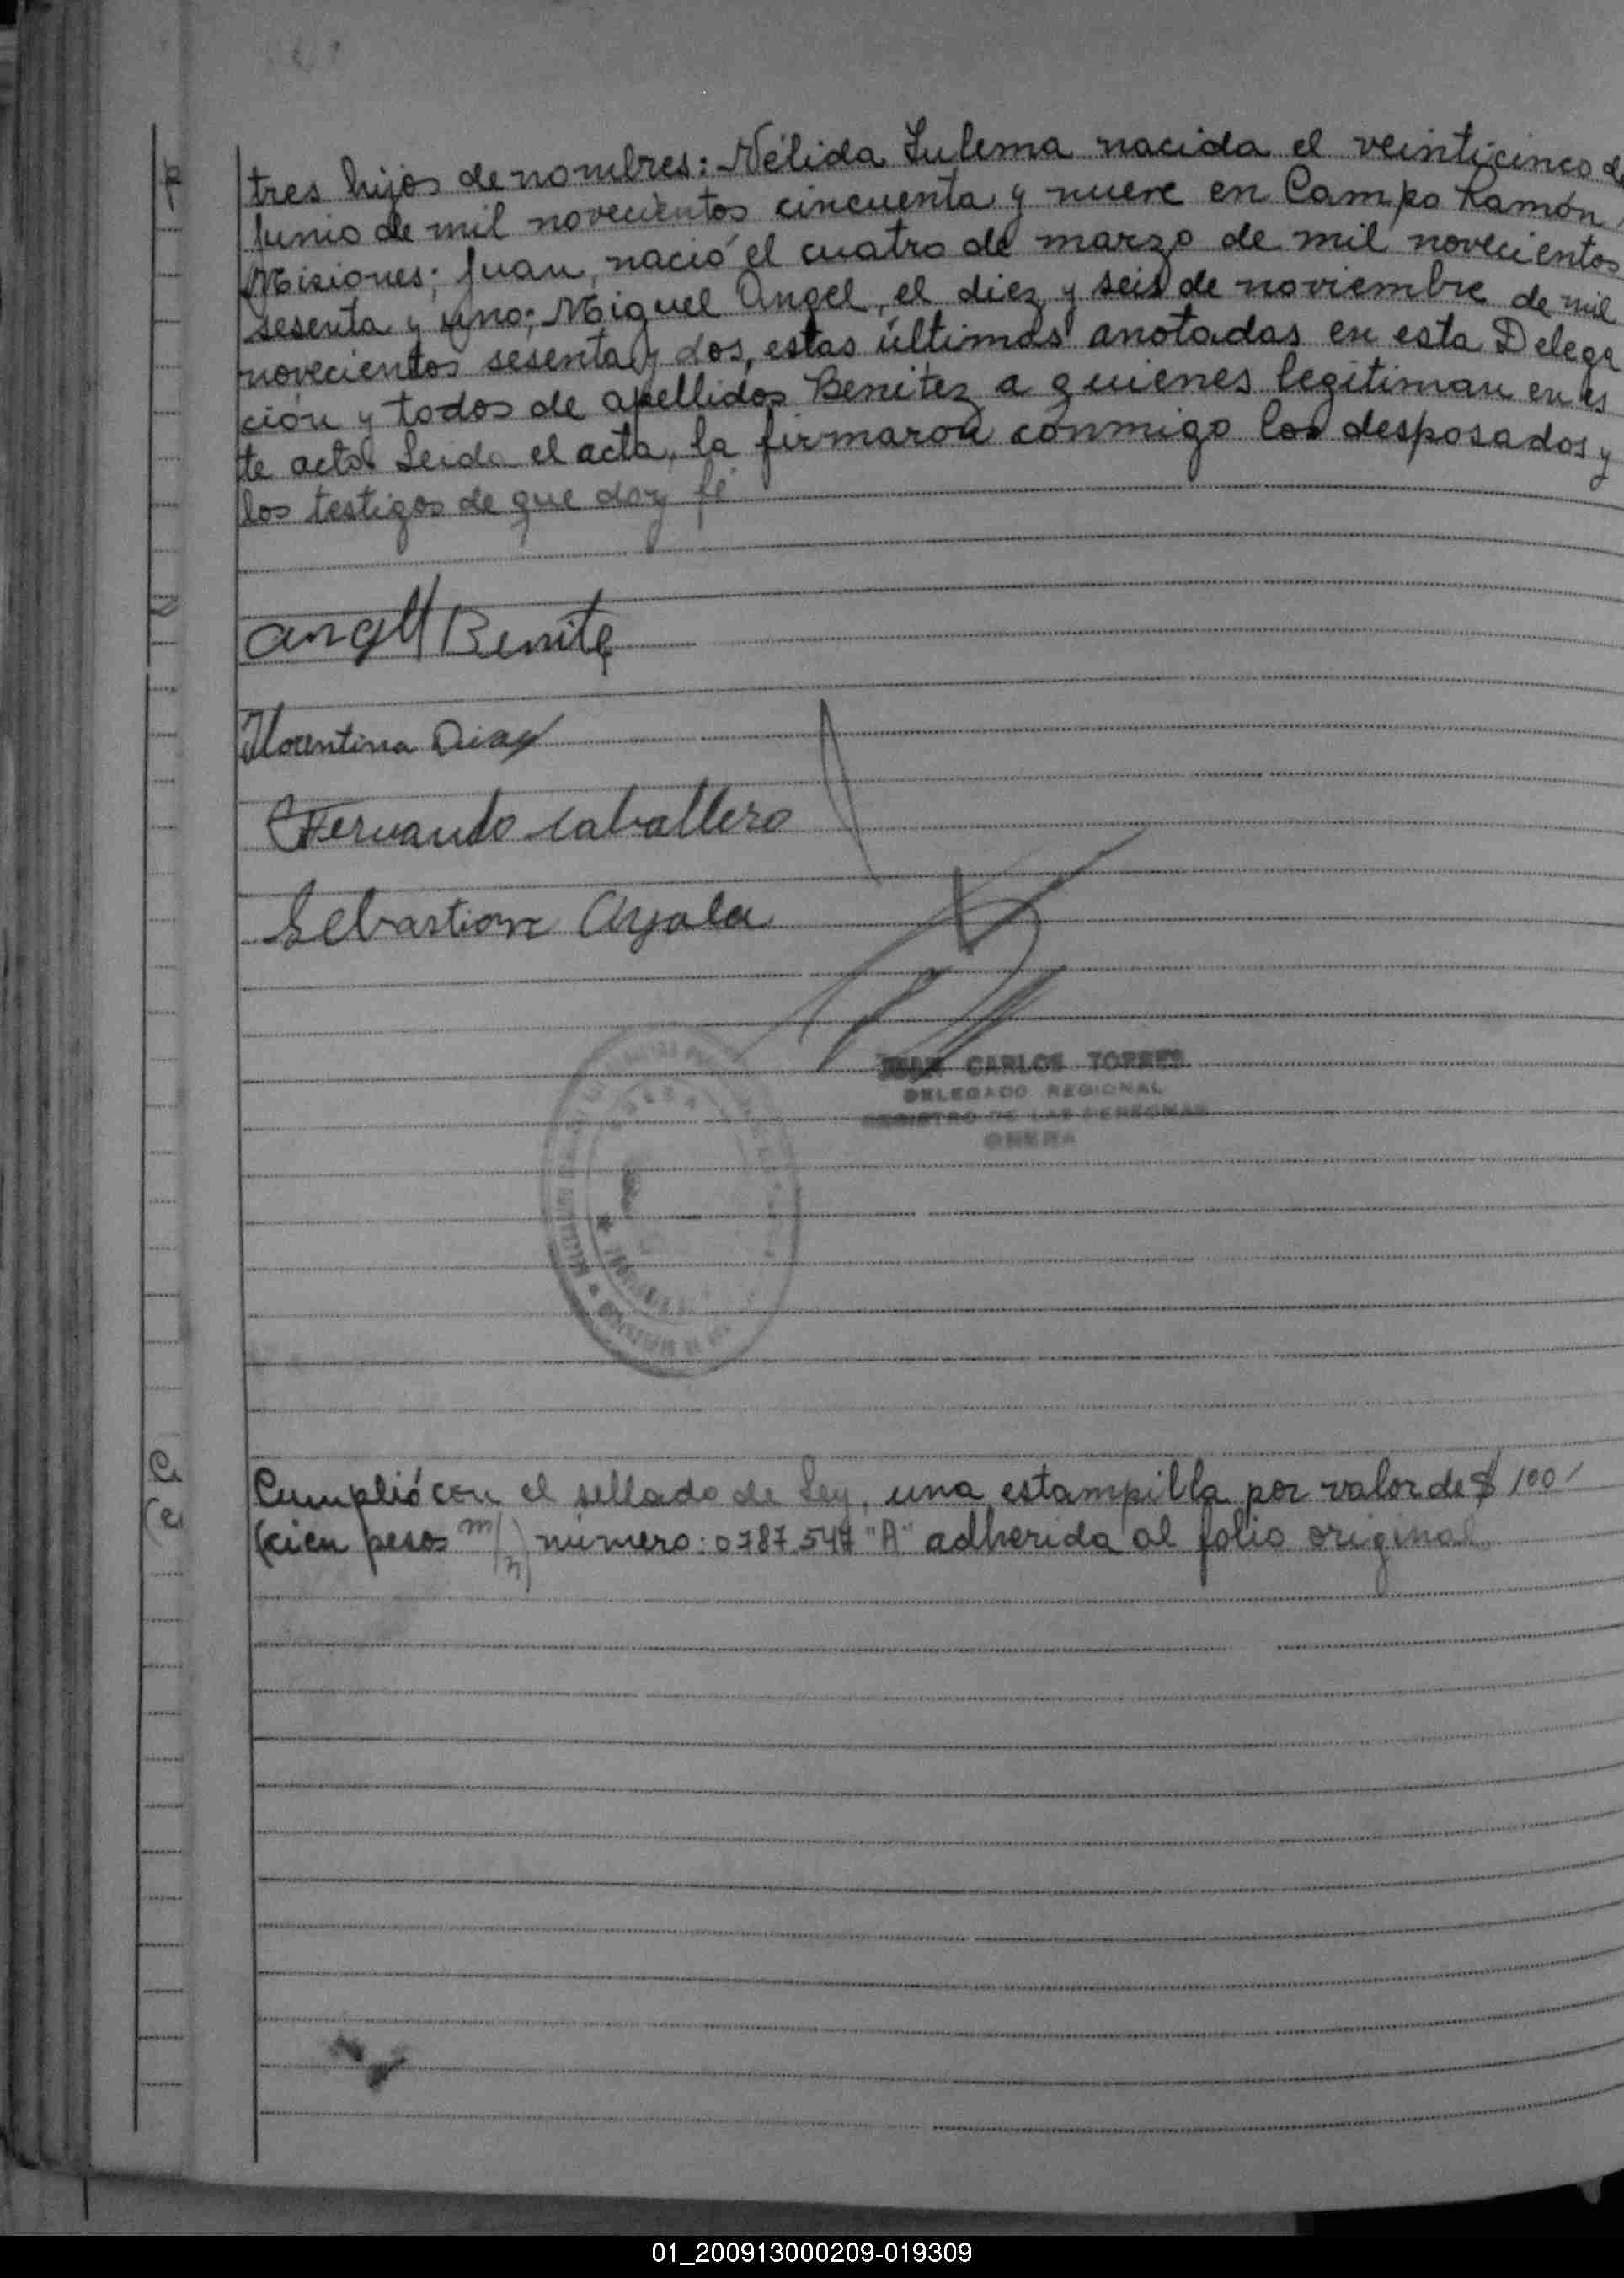 tres hijos de nombres: Nélida Sulema nacida el veinticinco de
Junio de mil novecientos cincuenta y nueve en Campo Ramón,
Misiones; Juan, nació el cuatro de marzo de mil novecientos
sesenta y uno; Miguel Angel, el diez y seis de noviembre de mil
novecientos sesenta y dos, estas últimas anotadas en esta Delega
ción y todos de apellidos Benitez a quienes legitiman en es
te acto. Leida el acta, la firmaron conmigo los desposados y
los testigos de que doy fé
Angel Benite
Florentina Diaz
Fernando Caballero
Sebastian Ayala
JUAN CARLOS TORRES
DELEGADO REGIONAL
REGISTRO DE LAS PERSONAS
OBERA
Cumplió con el sellado de Ley, una estampilla por valor de $ 100
(cien pesos m/n) número: 0787.547 "A" adherida al folio original
01_200913000209-019309